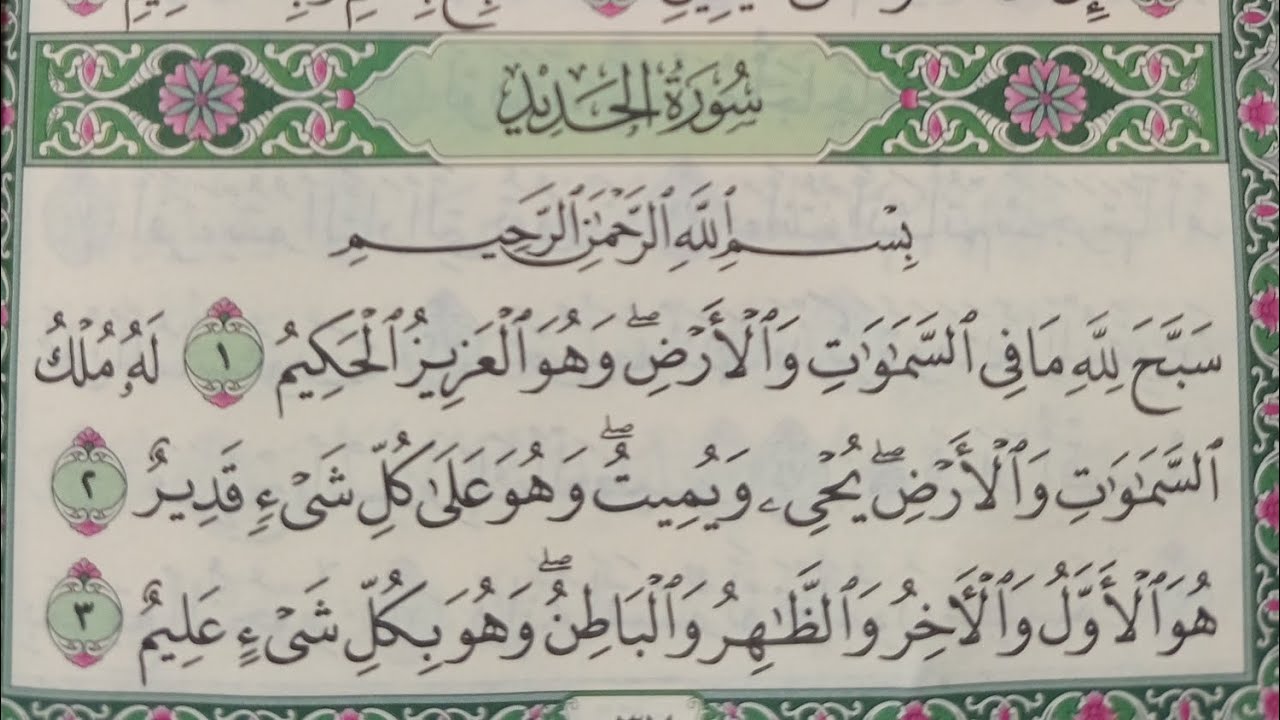 سُورَةُ الحَدِيدِ
بِسْمِ ٱللَّهِ ٱلرَّحْمَٰنِ ٱلرَّحِيمِ
سَبَّحَ لِلَّهِ مَا فِي ٱلسَّمَٰوَٰتِ وَٱلْأَرْضِۖ وَهُوَ ٱلْعَزِيزُ ٱلْحَكِيمُ ١ لَهُۥ مُلْكُ
ٱلسَّمَٰوَٰتِ وَٱلْأَرْضِۖ يُحْيِۦ وَيُمِيتُۖ وَهُوَ عَلَىٰ كُلِّ شَىْءٍ قَدِيرٌ ٢
هُوَ ٱلْأَوَّلُ وَٱلْأَخِرُ وَٱلظَّٰهِرُ وَٱلْبَاطِنُۖ وَهُوَ بِكُلِّ شَىْءٍ عَلِيمٌ ٣